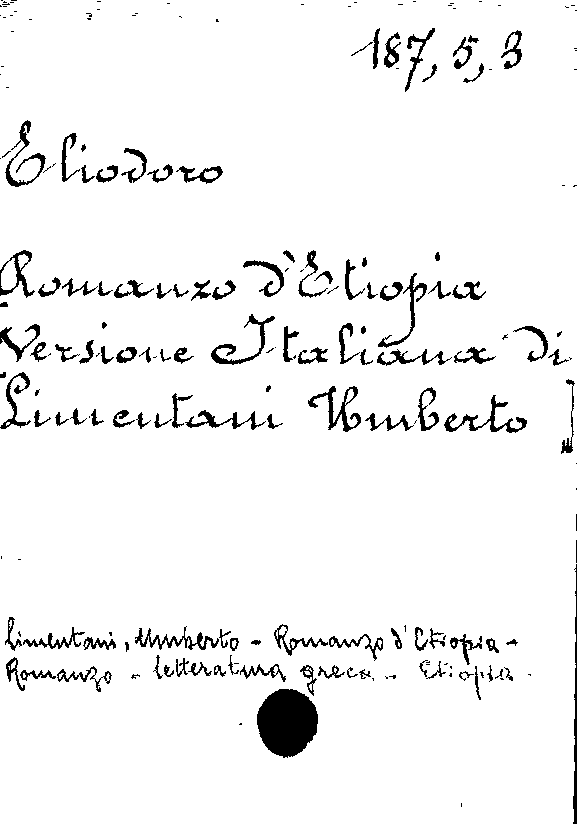 187, 5, 3
Eliodoro
Romanzo d'Etiopia
Versione Italiana di
Limentani Umberto ]
Limentani, Umberto - Romanzo d'Etiopia -
Romanzo - letteratura greca - Etiopia -